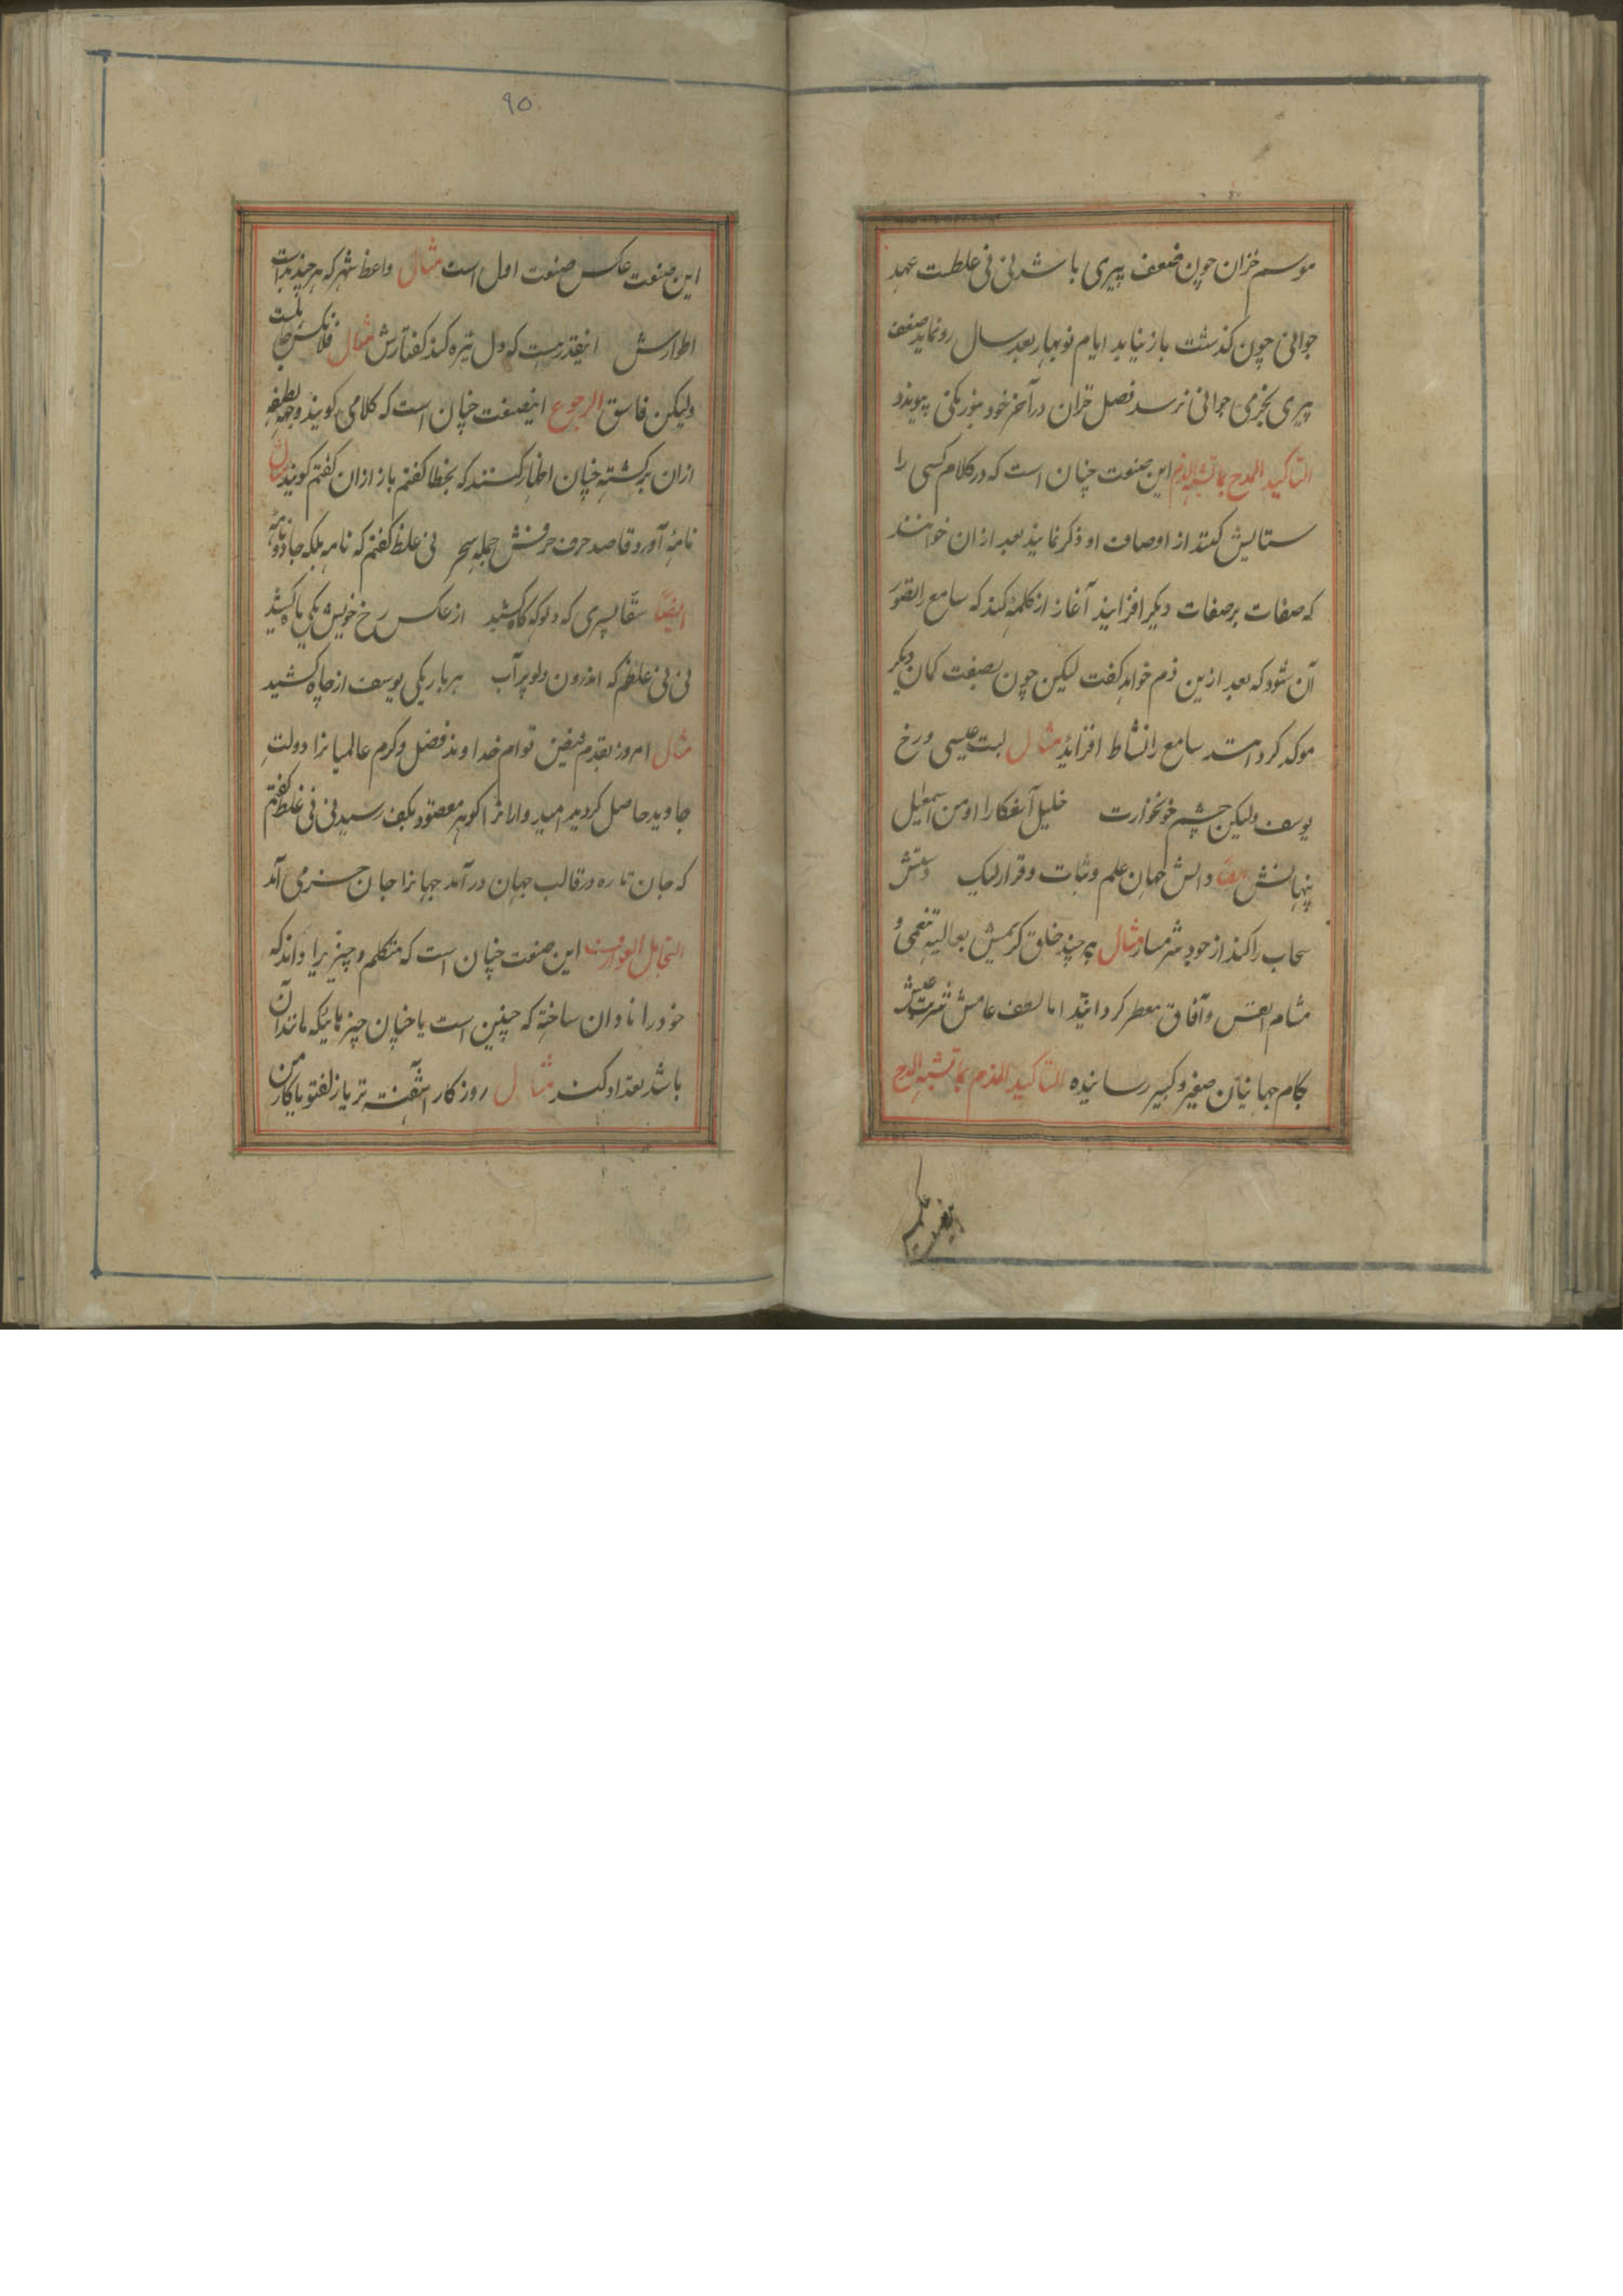 موسم خزان چون ضعف پیری باشد نی نی غلطست عهد
جوانی چون کذشت باز نیاید ایام نوبهار بعد سال رونماید ضعف
پیری بخرمی جوانی نرسد فصل خزان در آخر خود بنوربکی پیوندد
التاکید المدح بما تشبه الذم این صنعت چنان است که در کلام کسی را
ستایش کنند از اوصاف او ذکر نمایند بعد از ان خواهند
که صفات بر صفات دیکر افزایند آغاز از کلمهٔ کنند که سامع را تصور
آن شود که بعد ازین ذم خواهد کفت لیکن چون بصفت کمان دیکر
موکد کردد سامع را نشاط افزاید مثال لبت عیسی و رخ
یوسف ولیکن چشم خونخوارت خلیل آشکارا او من اسمعیل
پنهانش ایضا دانش جهان علم و ثبات و قرار لیک دستش
سحاب را کند از خود شرمسار مثال هر چند خلق کریمش بعالیه تنغمی و
مشام انفس و آفاق معطر کردانید اما لطف عامش شربت عیش
بکام جهانیان صغیر و کبیر رسانیده التاکید الذم بما تشبه المدح
اینصنعت عکس
۹۰
این صنعت عکس صنعت اول است مثال واعظ شهر که هر چند بد است
اطوارش اینقدر هست که دل تیره کند کفتارش مثال فلانکس جاهلست
ولیکن فاسق الرجوع اینصنعت چنان است که کلامی کویند و بجهه لطیفه
ازان برکشته چنان اظهار کنند که بخطا کفتم باز ازان کفتم کویند مثال
نامهٔ آورد قاصد حرف حرفش جمله سحر نی غلط کفتم که نامه بلکه جادو نامهٔ
ایضا سقا پسری که دلو که کاه کشید از عکس رخ خویش یکی ماه کشید
نی نی غلطم که اندرون دلو پر آب هر بار یکی یوسف از چاه کشید
مثال امروز بقدم فیض توام خداوند فضل و کرم عالمیانرا دولت
جاوید حاصل کردید امیدوارانرا کوهر مقصود بکف رسید نی نی غلط کفتم
که جان تازه در قالب جهان در آمد جهانرا جان خرمی آمد
التجاهل العوارف این صنعت چنان است که متکلم و چیزیرا داند که
خود را نادان ساخته که چنین است یا چنان چیزهائیکه مانند آن
باشد تعداد کنند مثال روزکار آشفته تر یا زلف تو یا کار من